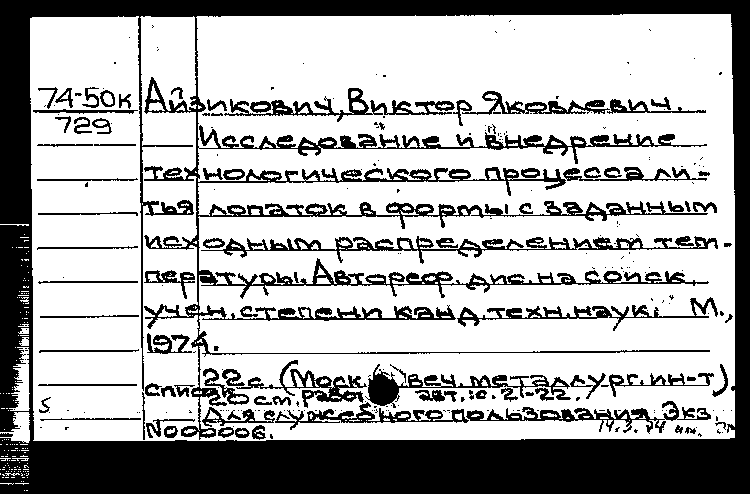 74-50к Айзикович, Виктор Яковлевич.
729
Исследование и внедрение
технологического процесса ли-
тья лопаток в формы с заданным
исходным распределением тем-
пературы. Автореф. дис. на соиск.
учен. степени канд. техн. наук. М.,
1974.
22 с. (Моск. веч. металлург. ин-т).
список работ авт.: с. 21-22.
Для служебного пользования. Экз.
N000006.
5
14.3.74